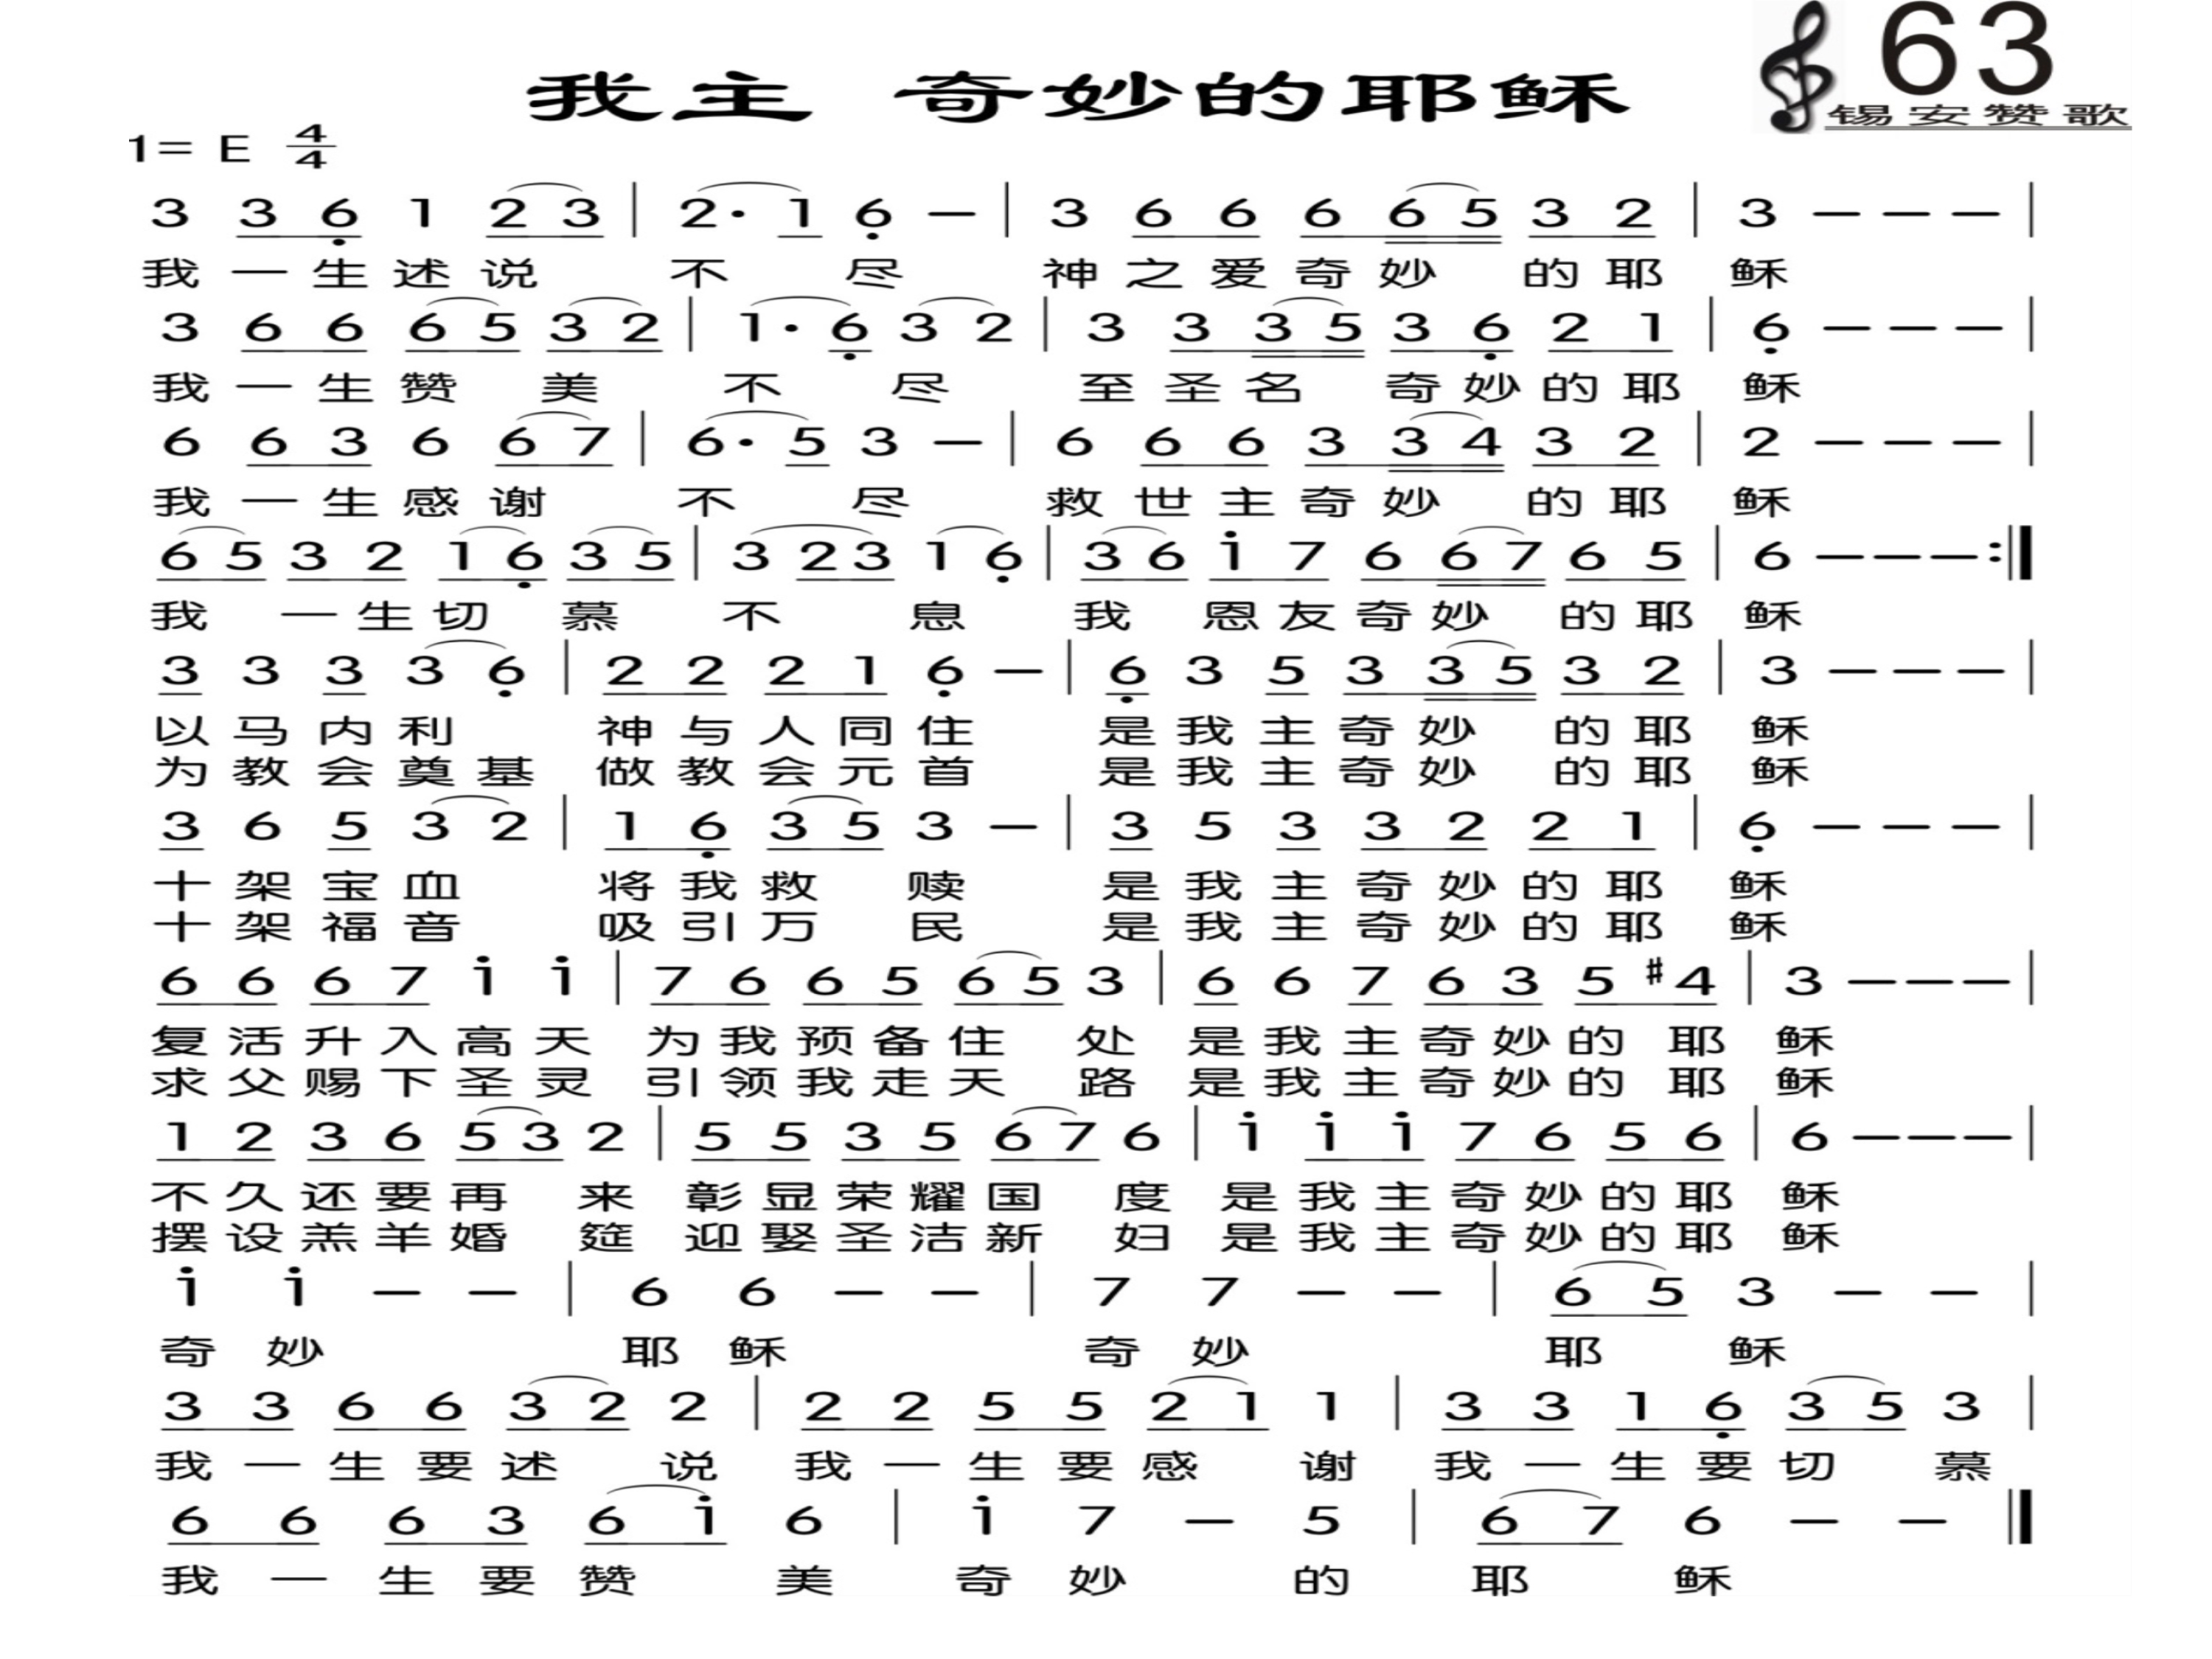 63
我主 奇妙的耶稣
锡安赞歌
1= E 4/4
3 3 6̣ 1 2 3 | 2· 1 6̣ — | 3 6 6 6 6 5 3 2 | 3 — — — |
我一生述说 不 尽 神之爱奇妙 的耶 稣
3 6 6 6 5 3 2 | 1· 6̣ 3 2 | 3 3 3 5 3 6̣ 2 1 | 6̣ — — — |
我一生赞 美 不 尽 至圣名 奇妙的耶 稣
6 6 3 6 6 7 | 6· 5 3 — | 6 6 6 3 3 4 3 2 | 2 — — — |
我一生感谢 不 尽 救世主奇妙 的耶 稣
6 5 3 2 1 6̣ 3 5 | 3 2 3 1 6̣ | 3 6 i 7 6 6 7 6 5 | 6 — — — :|
我 一生切 慕 不 息 我 恩友奇妙 的耶 稣
3 3 3 3 6̣ | 2 2 2 1 6̣ — | 6̣ 3 5 3 3 5 3 2 | 3 — — — |
以马内利 神与人同住 是我主奇妙 的耶 稣
为教会奠基 做教会元首 是我主奇妙 的耶 稣
3 6 5 3 2 | 1 6̣ 3 5 3 — | 3 5 3 3 2 2 1 | 6̣ — — — |
十架宝血 将我救 赎 是我主奇妙的耶 稣
十架福音 吸引万 民 是我主奇妙的耶 稣
6 6 6 7 i i | 7 6 6 5 6 5 3 | 6 6 7 6 3 5 #4 | 3 — — — |
复活升入高天 为我预备住 处 是我主奇妙的 耶 稣
求父赐下圣灵 引领我走天 路 是我主奇妙的 耶 稣
1 2 3 6 5 3 2 | 5 5 3 5 6 7 6 | i i i 7 6 5 6 | 6 — — — |
不久还要再 来 彰显荣耀国 度 是我主奇妙的耶 稣
摆设羔羊婚 筵 迎娶圣洁新 妇 是我主奇妙的耶 稣
i i — — | 6 6 — — | 7 7 — — | 6 5 3 — — |
奇妙 耶稣 奇妙 耶 稣
3 3 6 6 3 2 2 | 2 2 5 5 2 1 1 | 3 3 1 6̣ 3 5 3 |
我一生要述 说 我一生要感 谢 我一生要切 慕
6 6 6 3 6 i 6 | i 7 — 5 | 6 7 6 — — ||
我一生要赞 美 奇妙 的 耶 稣